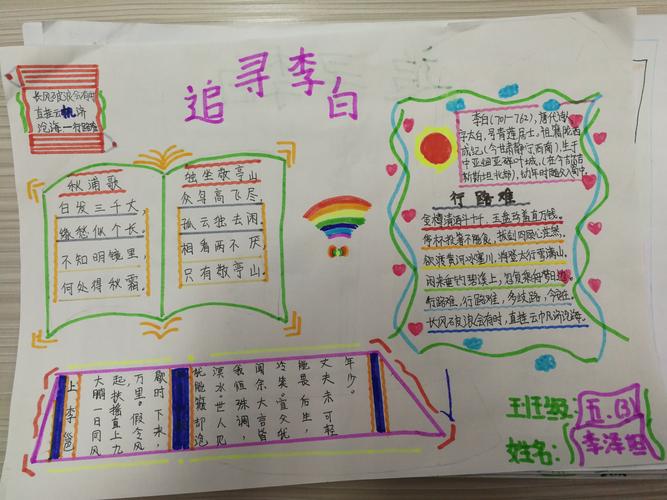 追寻李白
长风破浪会有时
直挂云帆济
沧海—行路难
秋浦歌
白发三千丈
缘愁似个长。
不知明镜里,
何处得秋霜。
独坐敬亭山
众鸟高飞尽,
孤云独去闲。
相看两不厌
只有敬亭山。
李白(701-762),唐代诗
字太白,号青莲居士,祖籍陇西
成纪(今甘肃静宁西南),生于
中亚碎叶城,(在今吉
行路难
金樽清酒斗十千,玉盘珍羞直万钱。
停杯投箸不能食,拔剑四顾心茫然。
欲渡黄河冰塞川,将登太行雪满山。
闲来垂钓碧溪上,忽复乘舟梦日边。
行路难,行路难,多歧路,今安在。
长风破浪会有时,直挂云帆济沧海。
上李邕
大鹏一日同风
起,扶摇直上九
万里。假令风
歇时下来,
犹能簸却沧
溟水。世人见
我恒殊调,
闻余大言皆
冷笑。宣父犹
能畏后生,
丈夫未可轻
年少。
班级:五.(3)
姓名:李泽